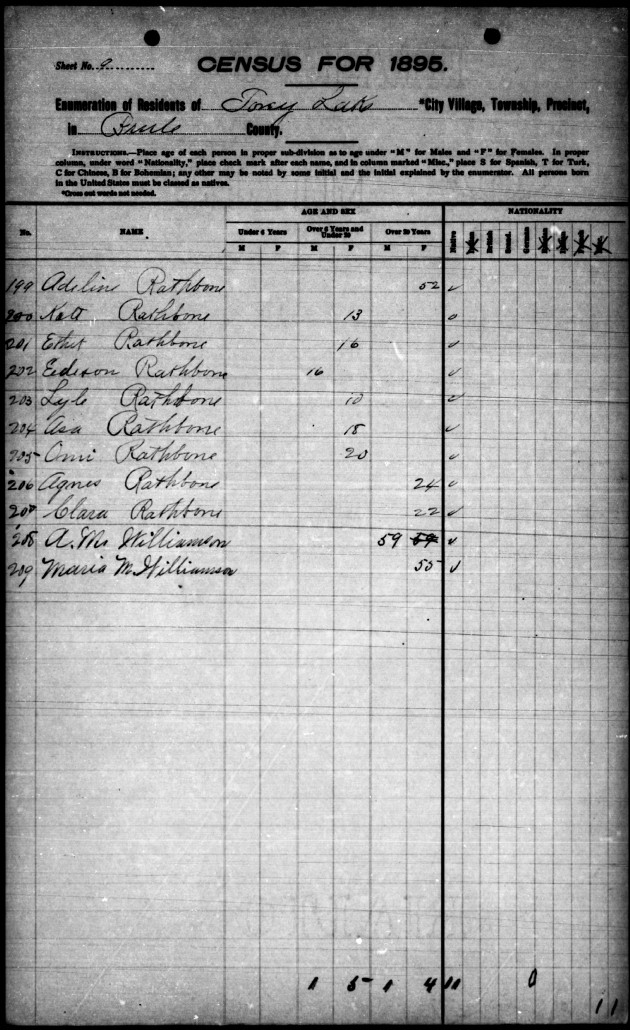 Sheet No. 9
CENSUS FOR 1895.
Enumeration of Residents of Torey Lake *City Village, Township, Precinct,
in Brule County.
INSTRUCTIONS.—Place age of each person in proper sub-division as to age under "M" for Males and "F" for Females. In proper
column, under word "Nationality," place check mark after each name, and in column marked "Misc.," place S for Spanish, T for Turk,
C for Chinese, B for Bohemian; any other may be noted by some initial and the initial explained by the enumerator. All persons born
in the United States must be classed as natives.
*Cross out words not needed.
AGE AND SEX NATIONALITY
No. NAME Under 6 Years Over 6 Years and Under 20 Over 20 Years Native British Scand. German
M F M F M F
199 Adeline Rathbone 52 ✓
200 Kate Rathbone 13 ✓
201 Ethel Rathbone 16 ✓
202 Edison Rathbone 16 ✓
203 Lyle Rathbone 10 ✓
204 Asa Rathbone 18 ✓
205 Omi Rathbone 20 ✓
206 Agnes Rathbone 24 ✓
207 Clara Rathbone 22 ✓
208 A. M. Williamson 59 59 ✓
209 Maria M. Williamson 55 ✓
1 5 1 4 11 0
11